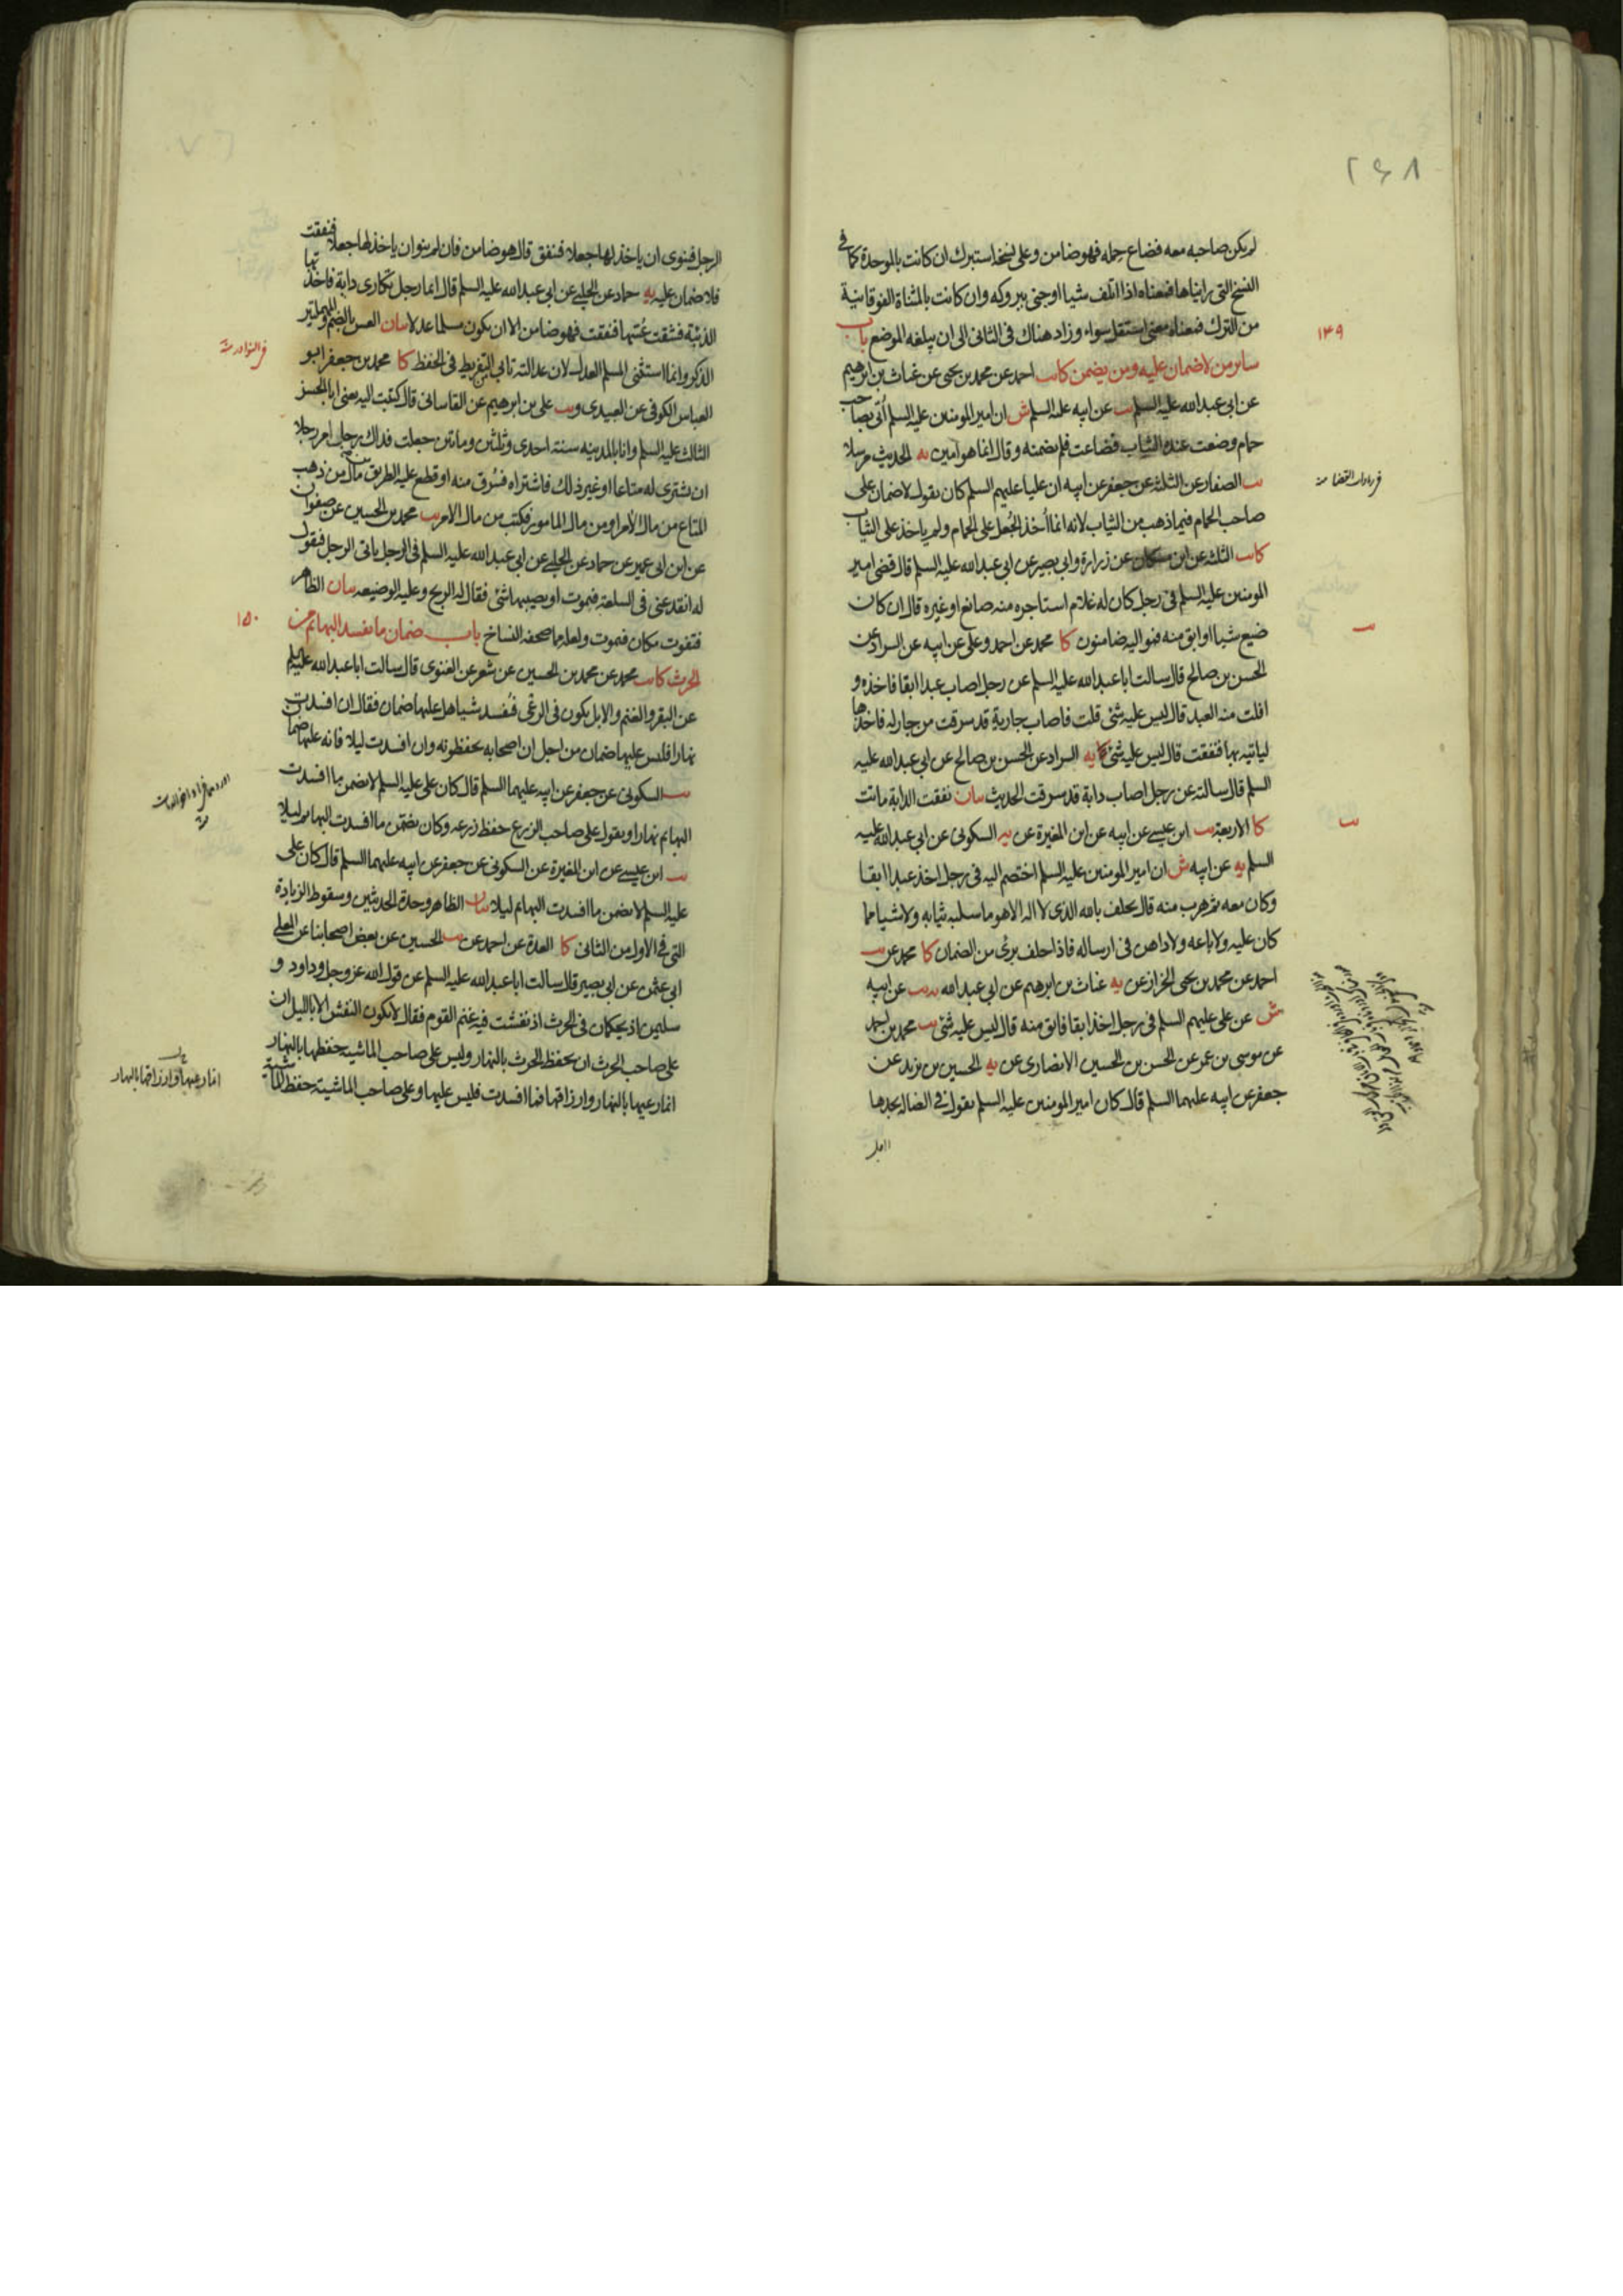 ۲۶۸
لم يكن صاحبه معه فضاع حمله فهو ضامن وعلى نسخة استبرك ان كانت بالموحدة كما في
النسخ التي رايناها فمعناه اذا اتلف شيا اوجنى ببروكه وان كانت بالمثناة الفوقانية
من الترك فمعناه معنى استقل سواء وزاد هناك في الثانى الى ان يبلغه الموضع باب
۱۴۹
ساير من لاضمان عليه ومن يضمن كا يب احمد عن محمد بن يحيى عن غياث بن ابرهيم
عن ابي عبد الله عليه السلم يب عن ابيه عليه السلم ش ان امير المومنين عليه السلم اُتى بصاحب
حمام وضعت عنده الثياب فضاعت فلم يضمنه وقال انما هو امين يه الحديث مرسلا
في زيادات القضا منه
يب الصفار عن الثلثة عن جعفر عن ابيه ان عليا عليهم السلم كان يقول لاضمان على
صاحب الحمام فيما ذهب من الثياب لانه انما أخذ الجُعل على الحمام ولم ياخذ على الثياب
كا يب الثلثة عن ابن مسكان عن زرارة وابي بصير عن ابي عبد الله عليه السلم قال قضى امير
المومنين عليه السلم في رجل كان له غلام استاجره منه صانع او غيره قال ان كان
ضيع شيا او ابق منه فمواليه ضامنون كا محمد عن احمد وعلى عن ابيه عن السراد عن
يب
الحسن بن صالح قال سالت ابا عبد الله عليه السلم عن رجل اصاب عبدا ابقا فاخذه و
افلت منه العبد قال ليس عليه شئ قلت فاصاب جارية قد سرقت من جار له فاخذها
لياتيه بها فنفقت قال ليس عليه شئ كا يه السراد عن الحسن بن صالح عن ابي عبد الله عليه
السلم قال سالته عن رجل اصاب دابة قد سرقت الحديث بيان نفقت الدابة ماتت
يب
كا الاربعة يب ابن عيسى عن ابيه عن ابن المغيرة عن يه السكونى عن ابي عبد الله عليه
السلم يه عن ابيه ش ان امير المومنين عليه السلم اختصم اليه في رجل اخذ عبدا ابقا
وكان معه ثم هرب منه قال يحلف بالله الذى لا اله الا هو ما سلبه ثيابه ولا شيا مما
كان عليه ولا باعه ولا داهن فى ارساله فاذا حلف برئ من الضمان كا محمد عن يب
احمد عن محمد بن يحيى الخزاز عن يه غياث بن ابرهيم عن ابي عبد الله يه يب عن ابيه
ش عن على عليهم السلم في رجل اخذ ابقا فابق منه قال ليس عليه شئ يب محمد بن احمد
عن موسى بن عمر عن الحسن بن الحسين الانصارى عن يه الحسين بن يزيد عن
جعفر عن ابيه عليهما السلم قال كان امير المومنين عليه السلم يقول في الضالة يجدها
الرجل فينوى ان ياخذ لها جعلا فتنفق قال هو ضامن فان لم ينو ان ياخذ لها جعلا فنفقت
فلا ضمان عليه يه حماد عن الحلبى عن ابي عبد الله عليه السلم قال ايما رجل تكارى دابة فاخذتها
الذئبة فشقت عُسّها فنفقت فهو ضامن الا ان يكون مسلما عدلا بيان العس بالضم والمهملتين
في النوادر منه
الذكر وانما استثنى المسلم العدل لان عدالته تابى التفريط فى الحفظ كا محمد بن جعفر ابو
العباس الكوفى عن العبيدى ويب على بن ابرهيم عن القاسانى قال كتبت اليه يعنى ابا الحسن
الثالث عليه السلم وانا بالمدينه سنة احدى وثلثين ومأتين جعلت فداك رجل امر رجلا
ان يشترى له متاعا او غير ذلك فاشتراه فسُرق منه او قطع عليه الطريق من مال من ذهب
المتاع من مال الأمر او من مال المامور فكتب من مال الامر يب محمد بن الحسين عن صفوان
عن ابن ابى عمير عن حماد عن الحلبى عن ابى عبد الله عليه السلم فى الرجل ياتى الرجل فيقول
له انقد عنى فى السلعة فيموت او يصيبها شئ فقال له الربح وعليه الوضيعه بيان الظاهر
۱۵۰
فتفوت مكان فيموت ولعله مما صحفه النساخ باب ضمان ما يفسد البهائم من
الحرث كا يب محمد عن محمد بن الحسين عن شعر عن الغنوى قال سالت ابا عبد الله عليه السلم
عن البقر والغنم والابل يكون فى الرعى فتفسد شيا هل عليها ضمان فقال ان افسدت
نهارا فليس عليها ضمان من اجل ان اصحابه يحفظونه وان افسدت ليلا فانه عليها ضمان
يب السكونى عن جعفر عن ابيه عليهما السلم قال كان على عليه السلم لا يضمن ما افسدت
البهايم نهارا ويقول على صاحب الزرع حفظ زرعه وكان يضمن ما افسدت البهايم ليلا
يب ابن عيسى عن ابن المغيرة عن السكونى عن جعفر عن ابيه عليهما السلم قال كان على
عليه السلم لا يضمن ما افسدت البهايم ليلا بيان الظاهر وحدة الحديثين وسقوط الزيادة
التى فى الاول من الثانى كا العدة عن احمد عن يب الحسين عن بعض اصحابنا عن المعلى
ابى عثمن عن ابى بصير قال سالت ابا عبد الله عليه السلم عن قول الله عز وجل وداود و
سليمن اذ يحكمان فى الحرث اذ نفشت فيه غنم القوم فقال لا يكون النفش الا بالليل ان
على صاحب الحرث ان يحفظ الحرث بالنهار وليس على صاحب الماشيه حفظها بالنهار
انما رعيها وارزاقها بالنهار
انما رعيها بالنهار وارزاقها فما افسدت فليس عليها وعلى صاحب الماشية حفظ الماشية